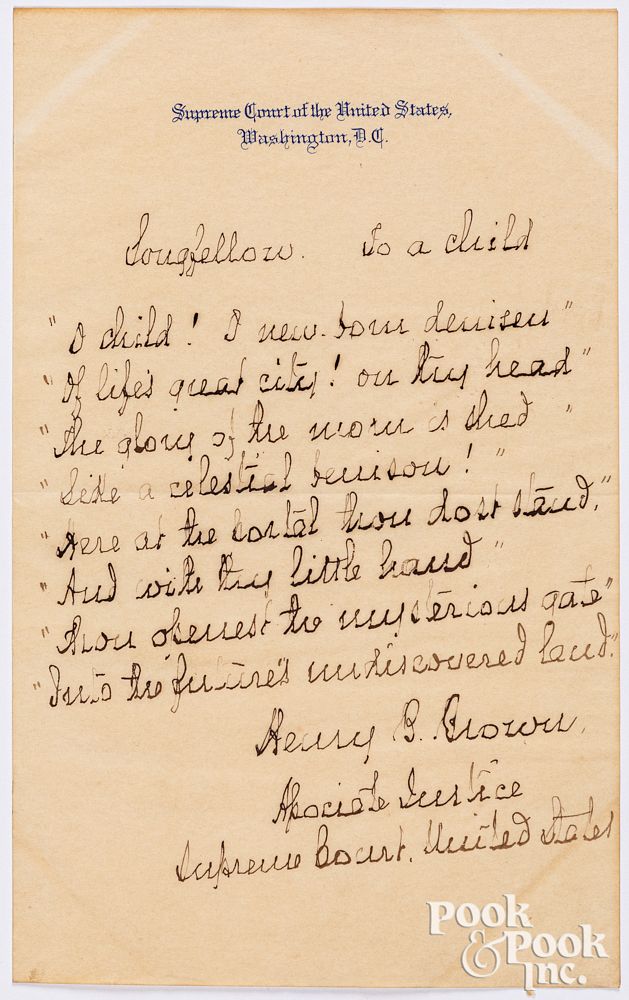 Supreme Court of the United States,
Washington, D.C.
Longfellow. To a child
"O child! O new-born denizen"
"Of life's great city! on thy head"
"The glory of the morn is shed"
"Like a celestial benison!"
"Here at the portal thou dost stand,"
"And with thy little hand"
"Thou openest the mysterious gate"
"Into the future's undiscovered land."
Henry B. Brown,
Associate Justice
Supreme Court, United States
POOK
& POOK
INC.